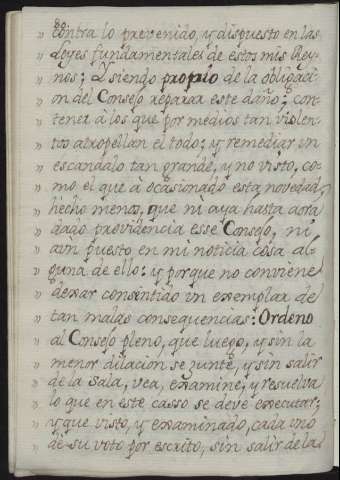 80.
" contra lo prevenido, y dispuesto en las
" Leyes fundamentales de estos mis Rey-
" nos; Y siendo propio de la obligaci-
" on del Consejo reparar este daño; con-
" tener à los que por medios tan violen-
" tos atropellan el todo; y remediar un
" escandalo tan grande, y no visto, co-
" mo el que à ocasionado esta novedad,
" hecho menos, que ni aya hasta aora
" dado providencia esse Consejo, ni
" aun puesto en mi noticia cosa al-
" guna de ello: y porque no conviene
" dexar consentido un exemplar de
" tan malas consequencias: Ordeno
" al Consejo pleno, que luego, y sin la
" menor dilacion se zunte, y sin salir
" de la Sala, vea, examine, y resuelva
" lo que en este casso se deve executar;
" y que visto, y examinado, cada uno
" dè su voto por escrito, sin salir de la